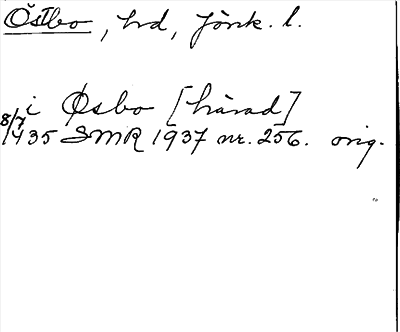 Östbo, hrd, Jönk. l.
i Øsbo [härad]
8/7 1435 SMR 1937 nr. 256. orig.